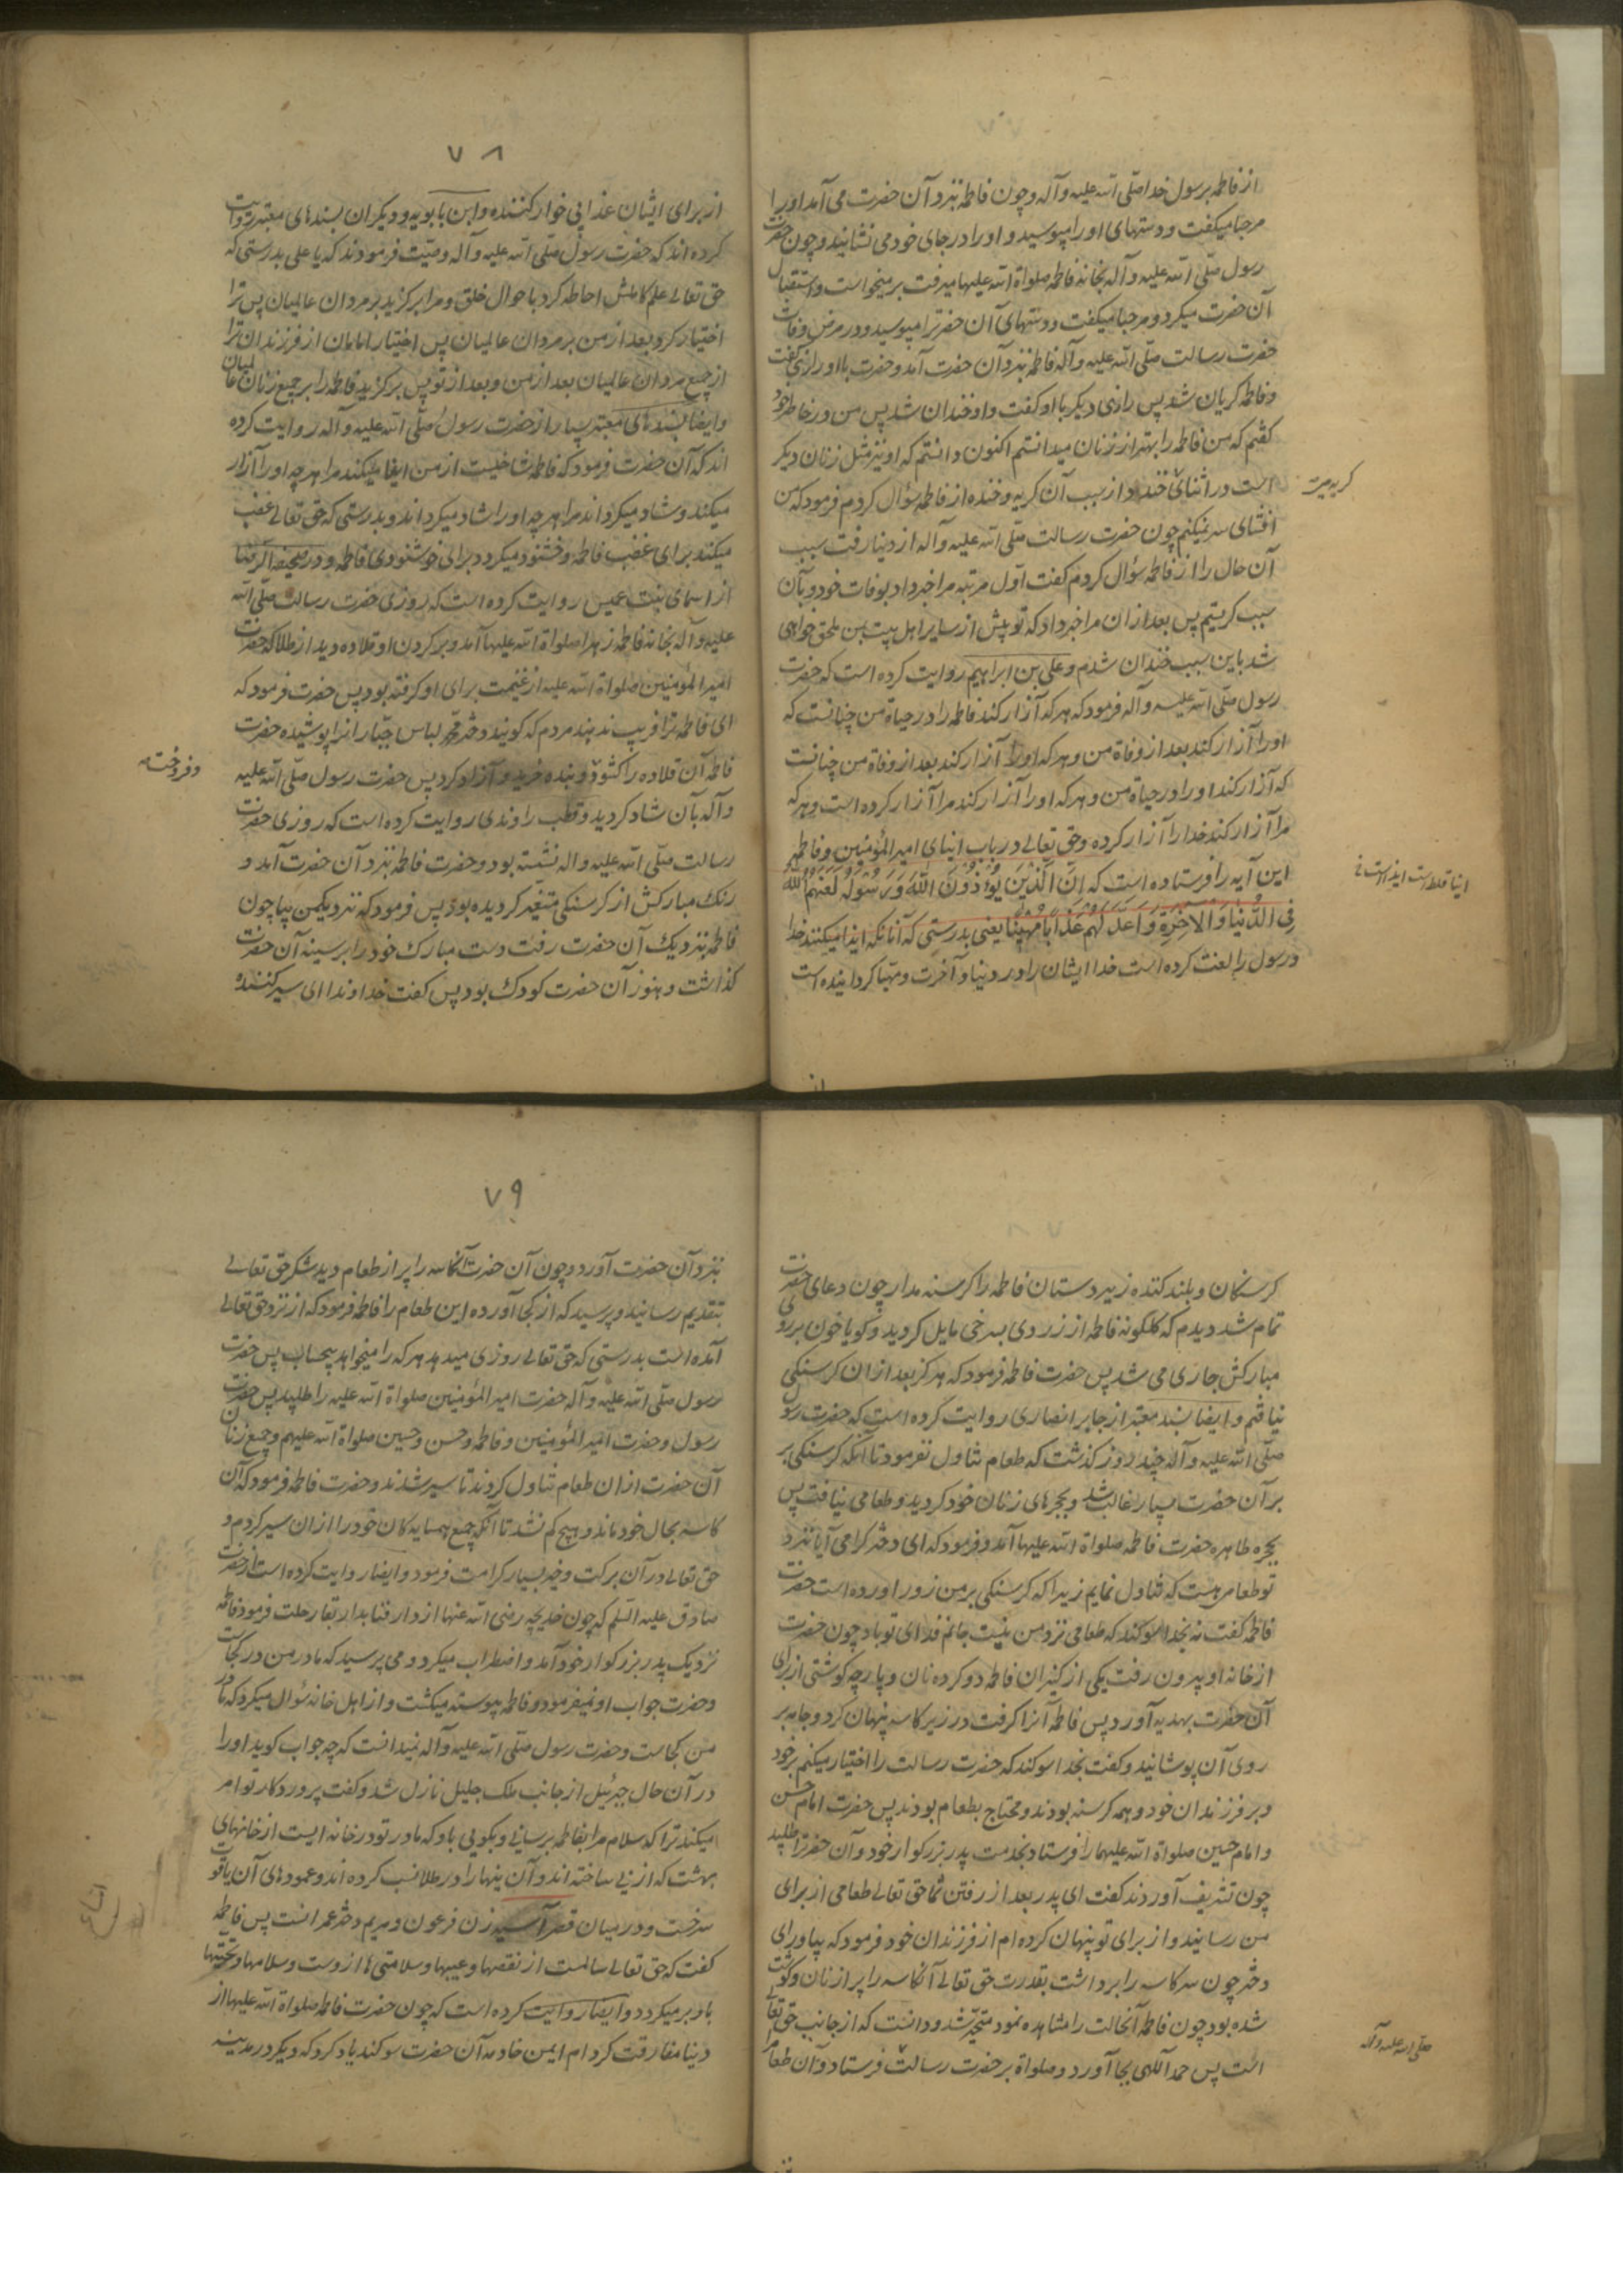 از فاطمه برسول خدا صلّی الله علیه وآله و چون فاطمه بنزد آن حضرت می آمد او را
مرحبا میکفت و دستهای او را میبوسید و او را در جای خود می نشانید و چون حضرت
رسول صلّی الله علیه وآله بخانه فاطمه صلواة الله علیها میرفت بر میخواست و استقبال
آن حضرت میکرد و مرحبا میکفت و دستهای آن حضرترا میبوسید و در مرض وفات
حضرت رسالت صلّی الله علیه وآله فاطمه بنزد آن حضرت آمد و حضرت با او رازی کفت
و فاطمه کریان شد پس رازی دیکر با او کفت و او خندان شد پس من در خاطر خود
کفتم که من فاطمه را بهتر از زنان میدانستم اکنون دانستم که او نیز مثل زنان دیکر
است در اثنای خنده و از سبب آن کریه و خنده از فاطمه سؤال کردم فرمود که من
کریه میرت
افشای سر نمیکنم چون حضرت رسالت صلّی الله علیه وآله از دنیا رفت سبب
آن حال را از فاطمه سؤال کردم کفت اوّل مرتبه مرا خبر داد بوفات خود و بآن
سبب کریستم پس بعد از ان مرا خبر داد که تو پیش از سایر اهل بیت بمن ملحق خواهی
شد باین سبب خندان شدم و علی بن ابراهیم روایت کرده است که حضرت
رسول صلّی الله علیه وآله فرمود که هر که آزار کند فاطمه را در حیاة من چنانست که
او را آزار کند بعد از وفاة من و هر که او را آزار کند بعد از وفاة من چنانست
که آزار کند او را در حیاة من و هر که او را آزار کند مرا آزار کرده است و هر که
مرا آزار کند خدا را آزار کرده و حق تعالی در باب ایذای امیر المؤمنین و فاطمه
این آیه را فرستاده است که اِنَّ الَّذینَ یُؤذُونَ اللّهَ وَ رَسُولَهُ لَعَنَهُمُ اللّهُ
فِی الدُّنیا وَ الآخِرَةِ وَ اَعَدَّ لَهُم عَذاباً مُهیناً یعنی بدرستی که آنانکه ایذا میکنند خدا
و رسول را لعنت کرده است خدا ایشان را در دنیا و آخرت و مهیّا کردانیده است
۷۸
از برای ایشان عذابی خوار کننده و ابن بابویه و دیکران بسندهای معتبر روایت
کرده اند که حضرت رسول صلّی الله علیه وآله وصیّت فرمودند که یا علی بدرستی که
حق تعالی علم کاملش احاطه کرد باحوال خلق و مرا بر کزید بر مردان عالمیان پس ترا
اختیار کرد بعد از من بر مردان عالمیان پس اختیار امامان از فرزندان ترا
از جمیع مردان عالمیان بعد از من و بعد از تو پس بر کزید فاطمه را بر جمیع زنان عالمیان
و ایضا بسندهای معتبر بسیار از حضرت رسول صلّی الله علیه وآله روایت کرده
اند که آن حضرت فرمود که فاطمه شاخیست از من ایذا میکند مرا هر چه او را آزار
میکند و شاد میکرداند مرا هر چه او را شاد میکرداند و بدرستی که حق تعالی غضب
میکند برای غضب فاطمه و خشنود میکردد برای خوشنودی فاطمه و در صحیفه الرضا
از اسمای بنت عمیس روایت کرده است که روزی حضرت رسالت صلّی الله
علیه وآله بخانه فاطمه زهرا صلواة الله علیها آمد و بر کردن او قلاده دید از طلا که حضرت
امیر المؤمنین صلواة الله علیه از غنیمت برای او کرفته بود پس حضرت فرمود که
ای فاطمه ترا فریب ندهند مردم که کویند دختر محمّد لباس جبّاران را پوشیده حضرت
فاطمه آن قلاده را کشود و بنده خرید و آزاد کرد پس حضرت رسول صلّی الله علیه
و فروخت
وآله بآن شاد کردید و قطب راوندی روایت کرده است که روزی حضرت
رسالت صلّی الله علیه واله نشسته بود و حضرت فاطمه بنزد آن حضرت آمد و
رنک مبارکش از کرسنکی متغیّر کردیده بود پس فرمود که نزدیک من بیا چون
فاطمه بنزدیک آن حضرت رفت دست مبارک خود را بر سینه آن حضرت
کذاشت و هنوز آن حضرت کودک بود پس کفت خداوندا ای سیر کننده
کرسنکان و بلند کننده زیر دستان فاطمه را کرسنه مدار چون دعای حضرت
تمام شد دیدم که کلکونه فاطمه از زردی بسرخی مایل کردید و کویا خون بر روی
مبارکش جاری می شد پس حضرت فاطمه فرمود که هرکز بعد از ان کرسنکی
نیافتم و ایضا بسند معتبر از جابر انصاری روایت کرده است که حضرت رسول
صلّی الله علیه وآله چند روز کذشت که طعام تناول نفرمود تا آنکه کرسنکی بر
بر آن حضرت بسیار غالب شد و بحجرهای زنان خود کردید و طعامی نیافت پس
بحجره طاهره حضرت فاطمه صلواة الله علیها آمد و فرمود که ای دختر کرامی آیا نزد
تو طعامی هست که تناول نمایم زیرا که کرسنکی بر من زور آورده است حضرت
فاطمه کفت نه بخدا سوکند که طعامی نزد من نیست جانم فدای تو باد چون حضرت
از خانه او بیرون رفت یکی از کنیزان فاطمه دو کرده نان و پارچه کوشتی از برای
آن حضرت بهدیه آورد پس فاطمه آنرا کرفت در زیر کاسه پنهان کرد و جامه بر
روی آن پوشانید و کفت بخدا سوکند که حضرت رسالت را اختیار میکنم بر خود
و بر فرزندان خود و همه کرسنه بودند و محتاج بطعام بودند پس حضرت امام حسن
و امام حسین صلواة الله علیهما را فرستاد بخدمت پدر بزرکوار خود و آن حضرترا طلبید
چون تشریف آوردند کفت ای پدر بعد از رفتن شما حق تعالی طعامی از برای
من رسانید و از برای تو پنهان کرده ام از فرزندان خود فرمود که بیاور ای
دختر چون سر کاسه را برداشت بقدرت حق تعالی آنکاسه را پر از نان و کوشت
شده بود چون فاطمه آنحالت را مشاهده نمود متحیّر شد و دانست که از جانب حق تعالی
است پس حمد اللهی بجا آورد و صلواة بر حضرت رسالت فرستاد و آن طعام را
صلّی الله علیه وآله
۷۹
بنزد آن حضرت آورد و چون آن حضرت آنکاسه را پر از طعام دید شکر حق تعالی
بتقدیم رسانید و پرسید که از کجا آورده این طعام را فاطمه فرمود که از نزد حق تعالی
آمده است بدرستی که حق تعالی روزی میدهد هر که را میخواهد بیحساب پس حضرت
رسول صلّی الله علیه وآله حضرت امیر المؤمنین صلواة الله علیه را طلبید پس حضرت
رسول و حضرت امیر المؤمنین و فاطمه و حسن و حسین صلواة الله علیهم و جمیع زنان
آن حضرت از ان طعام تناول کردند تا سیر شدند و حضرت فاطمه فرمود که آن
کاسه بحال خود ماند و هیچ کم نشد تا آنکه جمیع همسایه کان خود را از ان سیر کردم و
حق تعالی در آن برکت و خیر بسیار کرامت فرمود و ایضا روایت کرده است از حضرت
صادق علیه السّلم که چون خدیجه رضی الله عنها از دار فنا بدار بقا رحلت فرمود فاطمه
نزدیک پدر بزرکوار خود آمد و اضطراب میکرد و می پرسید که مادر من در کجاست
و حضرت جواب او نمیفرمود و فاطمه پیوسته میکشت و از اهل خانه سؤال میکرد که مادر
من کجاست و حضرت رسول صلّی الله علیه وآله نمیدانست که چه جواب کوید او را
در آن حال جبرئیل از جانب ملک جلیل نازل شد و کفت پروردکار تو امر
میکند ترا که سلام مرا بفاطمه برسانی و بکویی باو که مادر تو در خانه ایست از خانهای
بهشت که از نی ساخته اند و آن نیها را در طلا نصب کرده اند و عمودهای آن یاقوت
سرخست و در میان قصر آسیه زن فرعون و مریم دختر عمرانست پس فاطمه
کفت که حق تعالی سالمست از نقصها و عیبها و سلامتی ها از وست و سلامها و تحیّتها
باو بر میکردد و ایضا روایت کرده است که چون حضرت فاطمه صلواة الله علیها از
دنیا مفارقت کرد ام ایمن خادمه آن حضرت سوکند یاد کرد که دیکر در مدینه